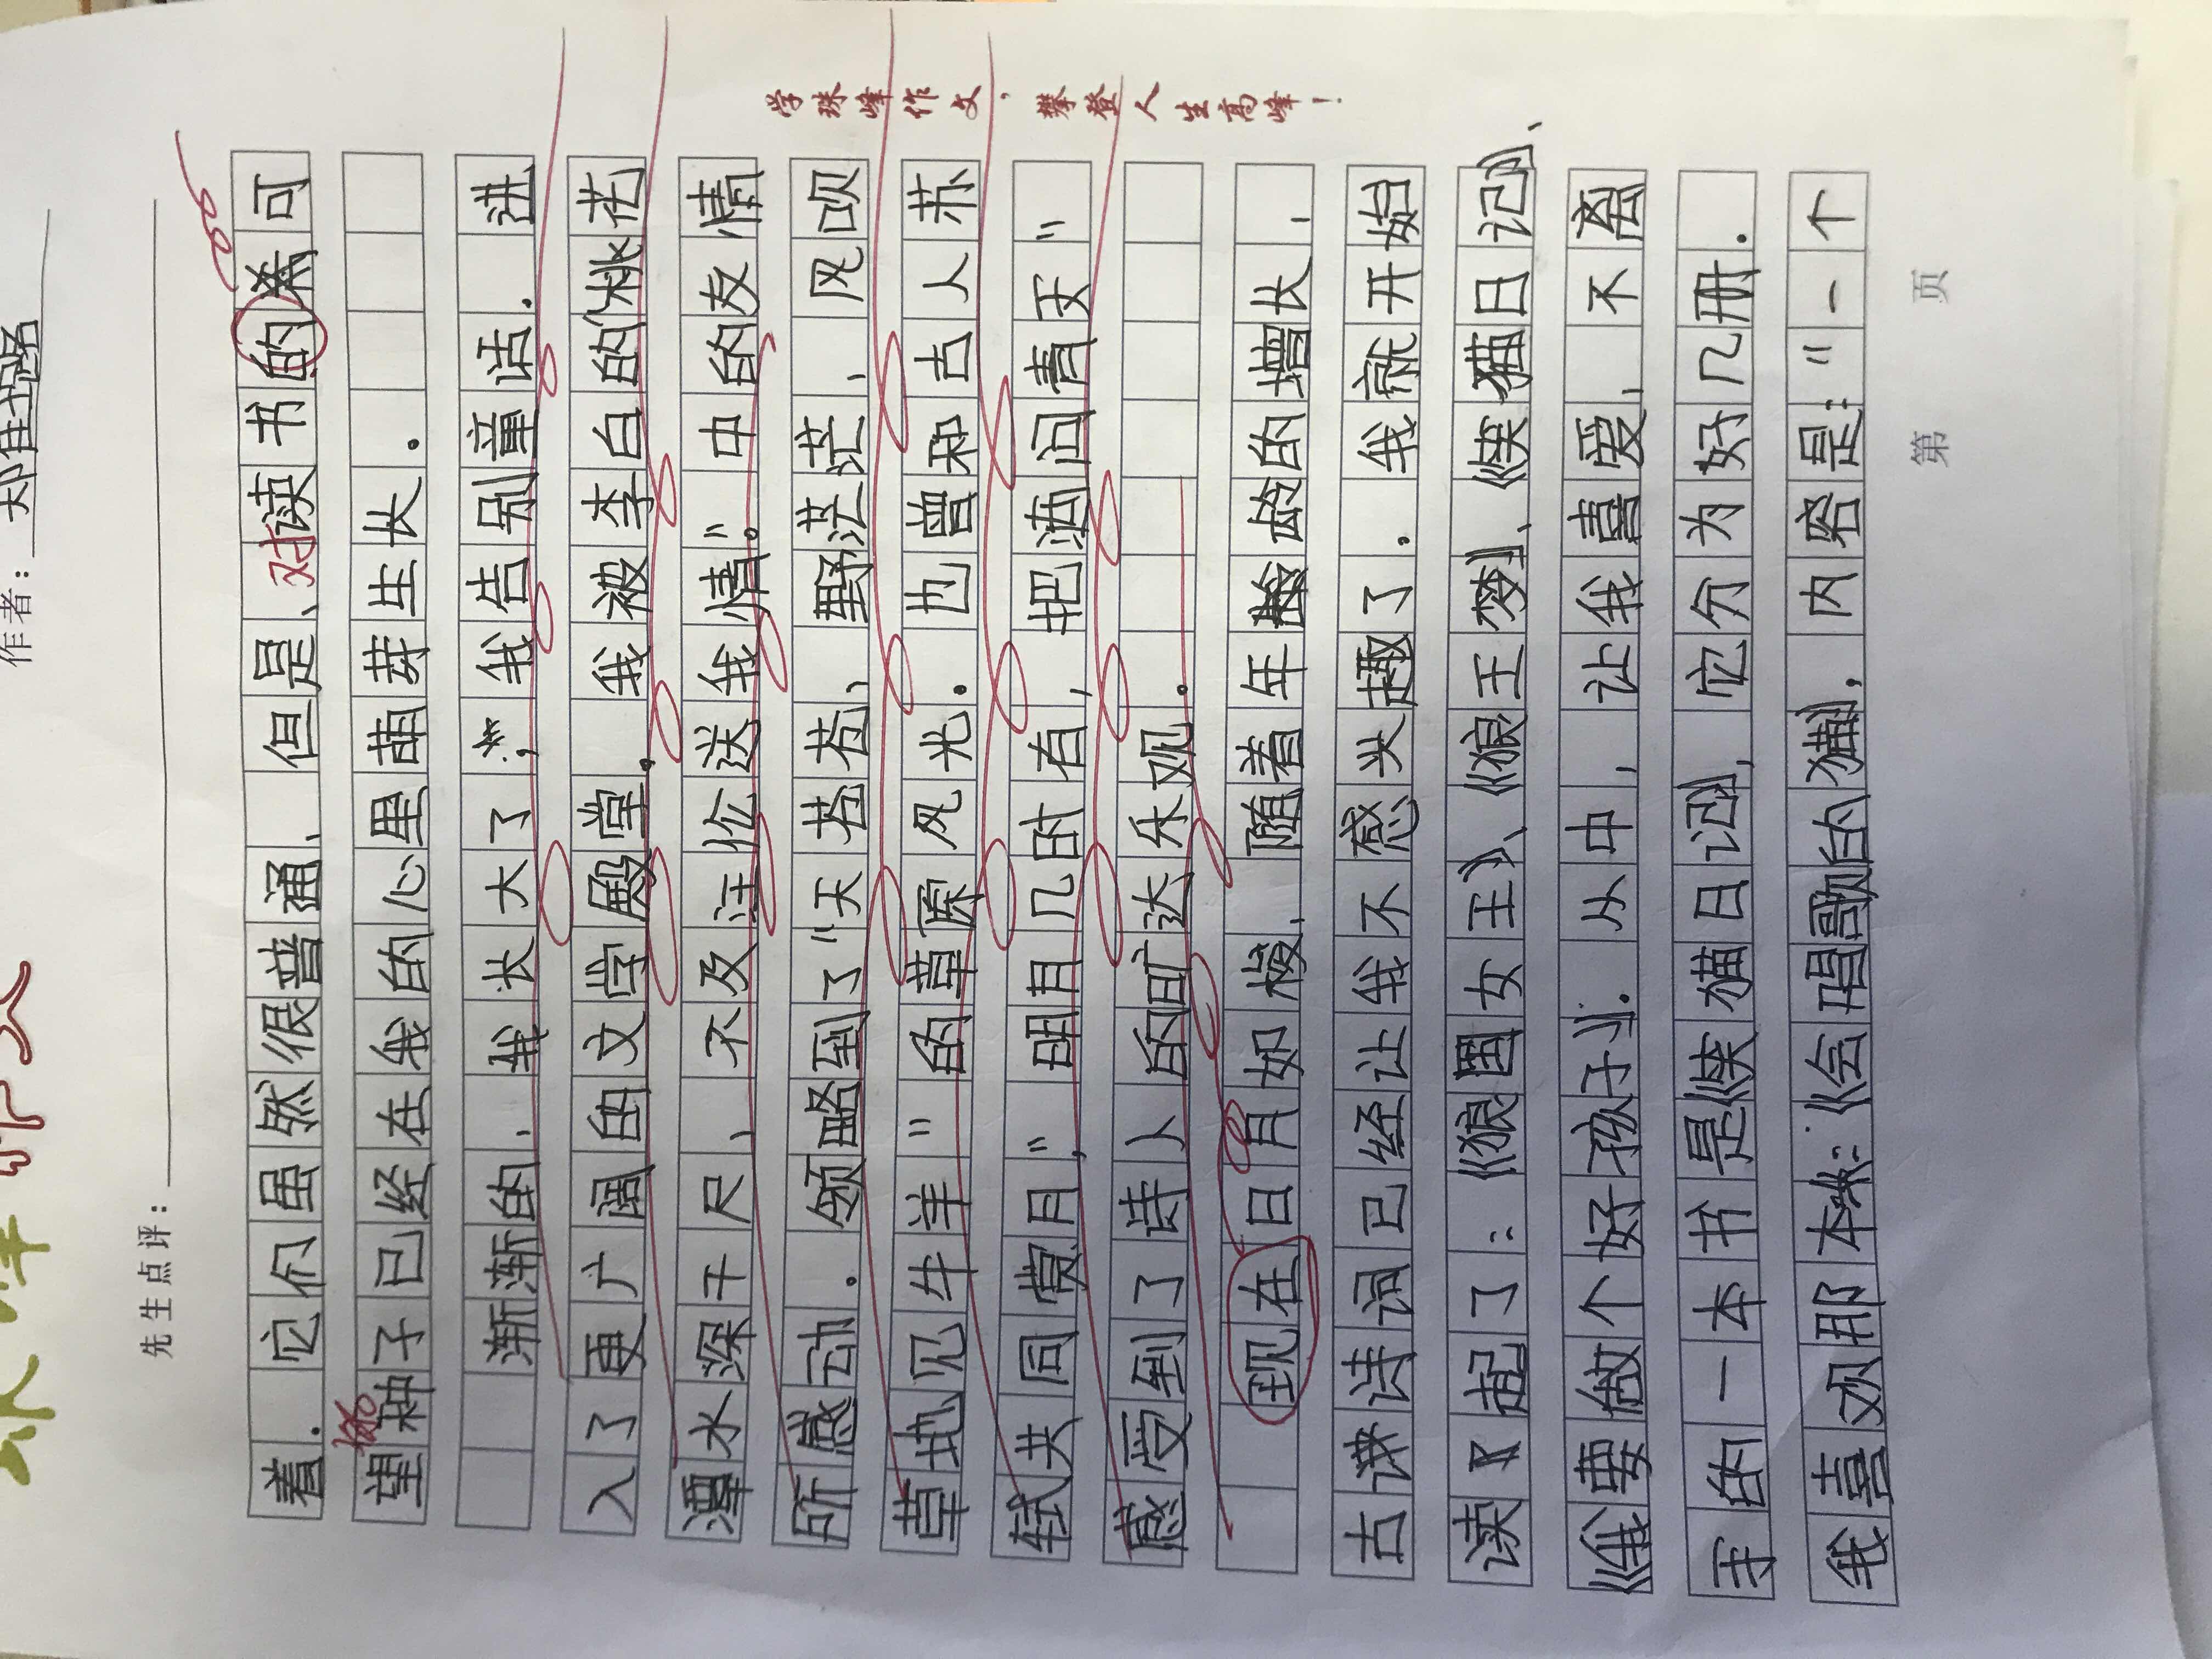 作者：
先生点评：
着．它们虽然很普通、但是、对读书的希可
望种子已经在我的心里萌芽生长．
渐渐的、我长大了，我告别童话．进
入了更广阔的文学殿堂．我被李白的“桃花
潭水深千尺、不及汪伦送我情”。中的友情
所感动．领略到了“天苍苍，野茫茫、风吹
草地见牛羊”的草原风光．也曾和古人苏
轼共同赏月”，明月几时有，把酒问青天”
感受到了诗人的旷达乐观．
现在日月如梭、随着年龄的增长、
古诗词已经让我不感头趣了．我就开始
读起了：《狼国女王》、《狼王梦》、《笑猫日记》、
《我要做个好孩子》．从中，让我喜爱、不离
手的一本书是《笑猫日记》，它分为好几册．
我喜欢那本：《会唱歌的猫》，内容是：“一个
第 页
学珠峰作文，攀登人生高峰！